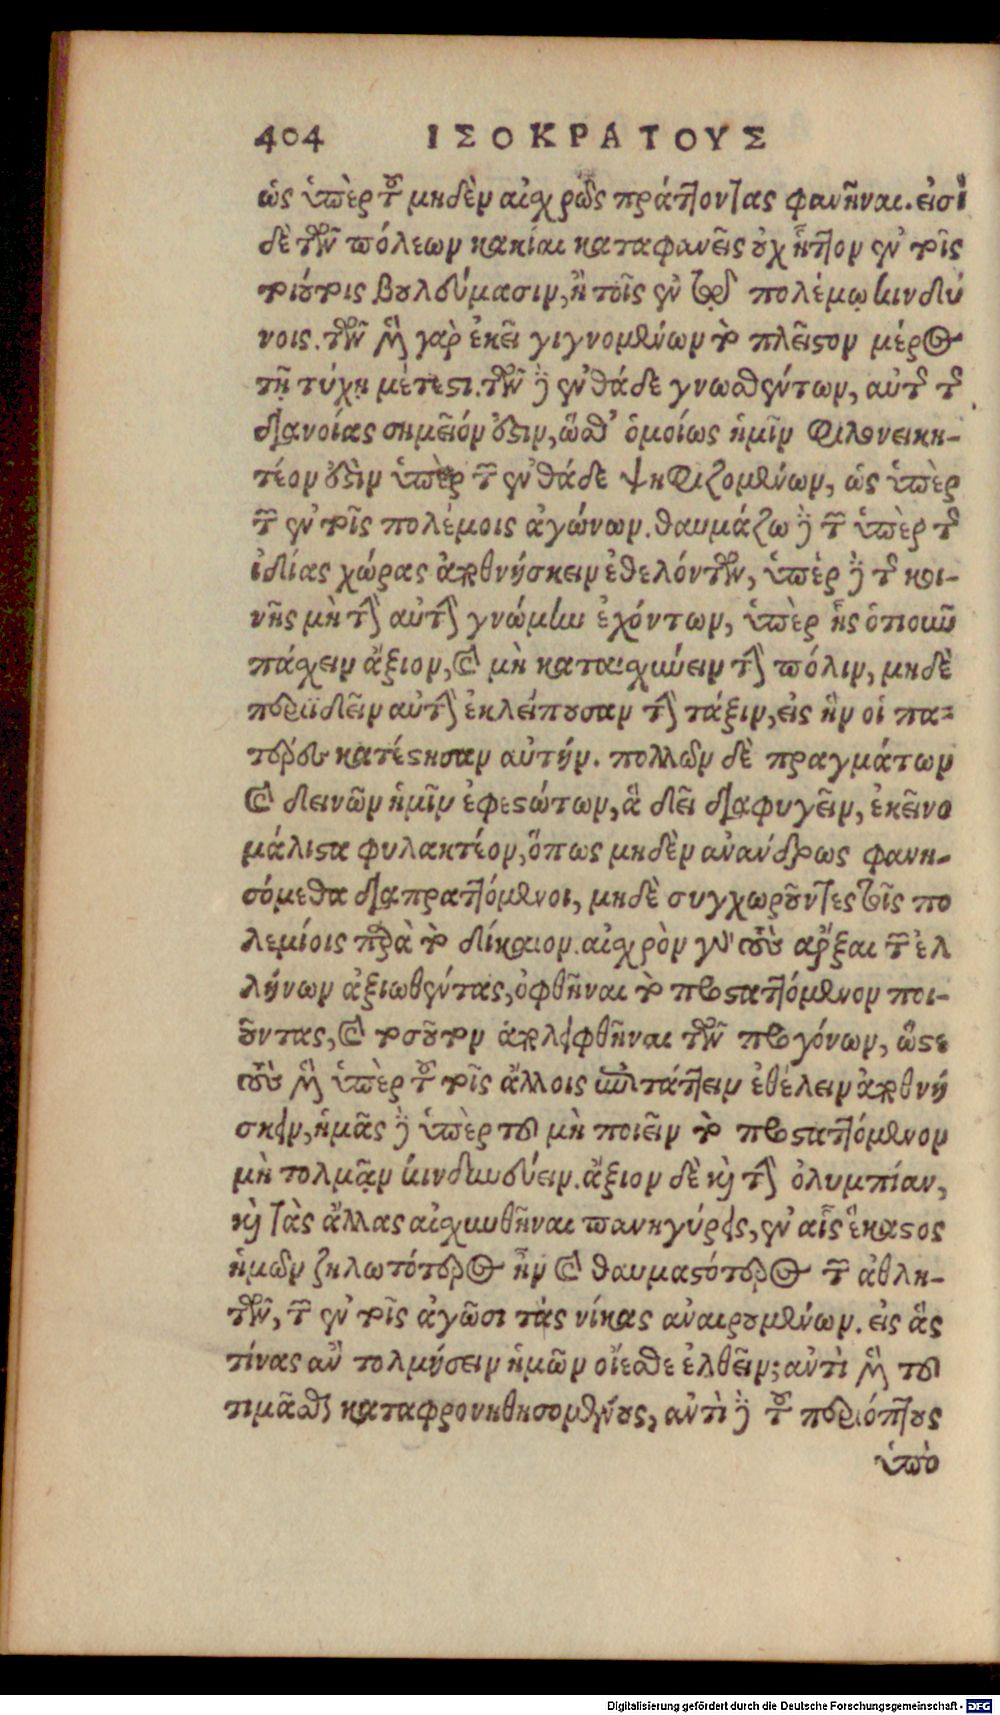 404 ΙΣΟΚΡΑΤΟΥΣ
ὡς ὑπὲρ τοῦ μηδὲν αἰσχρῶς πράττοντας φανῆναι. εἰσὶ
δὲ τῶν πόλεων κακίαι καταφανεῖς οὐχ ἧττον ἐν τοῖς
τοιούτοις βουλεύμασιν, ἢ τοῖς ἐν τῷ πολέμῳ κινδύ
νοις. τῶν μὲν γὰρ ἐκεῖ γιγνομένων τὸ πλεῖστον μέρος
τῇ τύχῃ μέτεστι. τῶν δὲ ἐνθάδε γνωσθέντων, αὐτῆς τῆς
διανοίας σημεῖόν ἐστιν, ὥσθ' ὁμοίως ἡμῖν φιλονεικη-
τέον ἐστὶν ὑπὲρ τῶν ἐνθάδε ψηφιζομένων, ὡς ὑπὲρ
τῶν ἐν τοῖς πολέμοις ἀγώνων. θαυμάζω δὲ τῶν ὑπὲρ τῆς
ἰδίας χώρας ἀποθνήσκειν ἐθελόντων, ὑπὲρ δὲ τῆς κοι-
νῆς μὴ τὴν αὐτὴν γνώμην ἐχόντων, ὑπὲρ ἧς ὁτιοῦν
πάσχειν ἄξιον, καὶ μὴ καταισχύνειν τὴν πόλιν, μηδὲ
περιϊδεῖν αὐτὴν ἐκλείπουσαν τὴν τάξιν, εἰς ἣν οἱ πα-
τέρες κατέστησαν αὐτήν. πολλῶν δὲ πραγμάτων
καὶ δεινῶν ἡμῖν ἐφεστώτων, ἃ δεῖ διαφυγεῖν, ἐκεῖνο
μάλιστα φυλακτέον, ὅπως μηδὲν ἀνάνδρως φανη-
σόμεθα διαπραττόμενοι, μηδὲ συγχωροῦντες τοῖς πο
λεμίοις παρὰ τὸ δίκαιον. αἰσχρὸν γὰρ τοὺς ἄρξαι τῶν ἑλ
λήνων ἀξιωθέντας, ὀφθῆναι τὸ προσταττόμενον ποι-
οῦντας, καὶ τοσοῦτον ἀπολειφθῆναι τῶν προγόνων, ὥστε
τοὺς μὲν ὑπὲρ τοῦ τοῖς ἄλλοις ἐπιτάττειν ἐθέλειν ἀποθνή
σκειν, ἡμᾶς δὲ ὑπὲρ τοῦ μὴ ποιεῖν τὸ προσταττόμενον
μὴ τολμᾷν κινδυνεύειν. ἄξιον δὲ καὶ τὴν ὀλυμπίαν,
καὶ τὰς ἄλλας αἰσχυνθῆναι πανηγύρεις, ἐν αἷς ἕκαστος
ἡμῶν ζηλωτότερος ἦν καὶ θαυμαστότερος τῶν ἀθλη-
τῶν, τῶν ἐν τοῖς ἀγῶσι τὰς νίκας ἀναιρουμένων. εἰς ἃς
τίνας ἂν τολμήσειν ἡμῶν οἴεσθε ἐλθεῖν; ἀντὶ μὲν τοῦ
τιμᾶσθαι καταφρονηθησομένους, ἀντὶ δὲ τοῦ περιόπτους
ὑπὸ
Digitalisierung gefördert durch die Deutsche Forschungsgemeinschaft - DFG